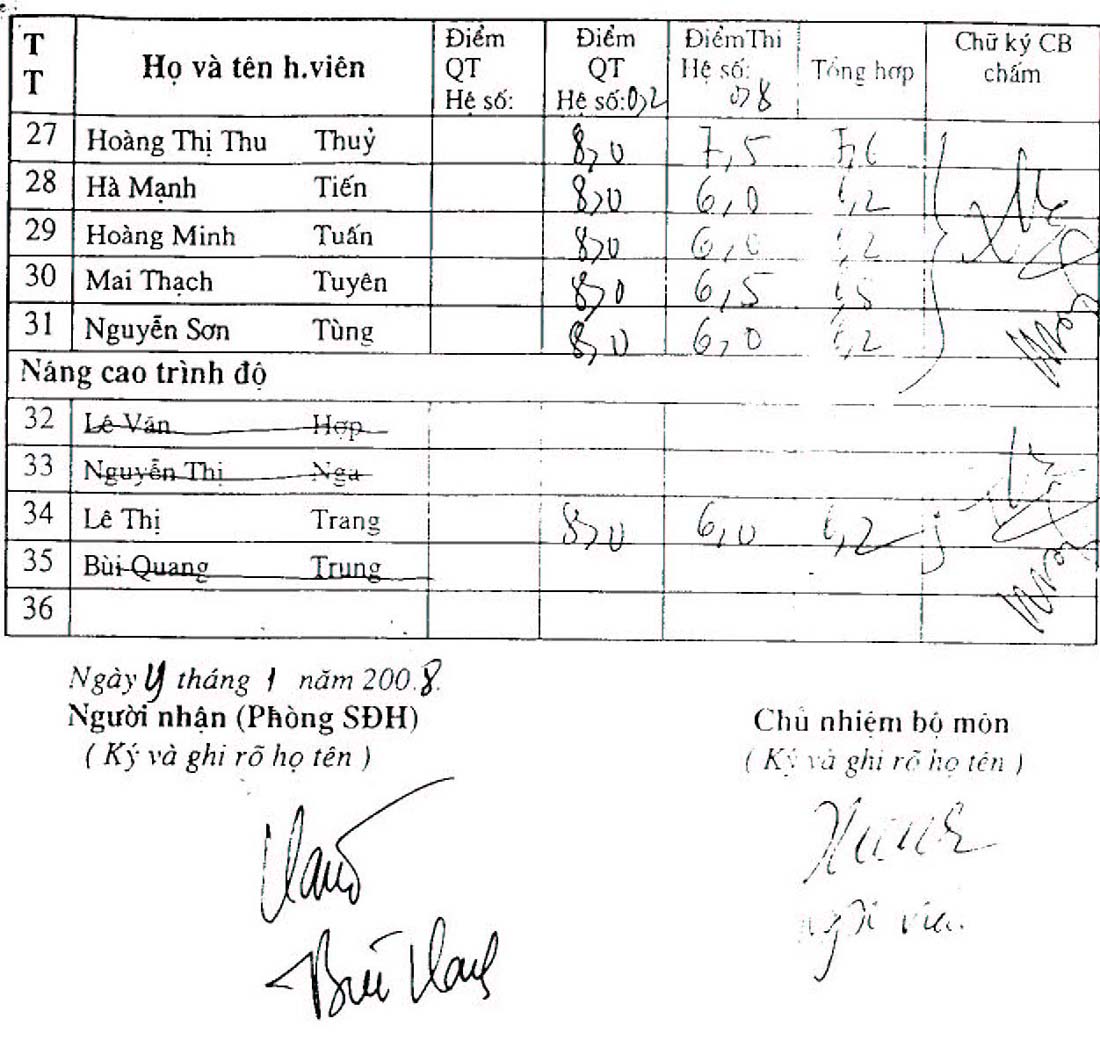 TT Họ và tên h.viên Điểm QT Hệ số: Điểm QT Hệ số: 0,2 Điểm Thi Hệ số: 0,8 Tổng hợp Chữ ký CB chấm
27 Hoàng Thị Thu Thuỷ 8,0 7,5 7,6
28 Hà Mạnh Tiến 8,0 6,0 6,2
29 Hoàng Minh Tuấn 8,0 6,0 6,2
30 Mai Thạch Tuyên 8,0 6,5
31 Nguyễn Sơn Tùng 8,0 6,0 6,2
Nâng cao trình độ
32 Lê Văn Hợp
33 Nguyễn Thị Nga
34 Lê Thị Trang 8,0 6,0 6,2
35 Bùi Quang Trung
36
Ngày tháng 1 năm 2008.
Người nhận (Phòng SĐH) Chủ nhiệm bộ môn
( Ký và ghi rõ họ tên ) ( Ký và ghi rõ họ tên )